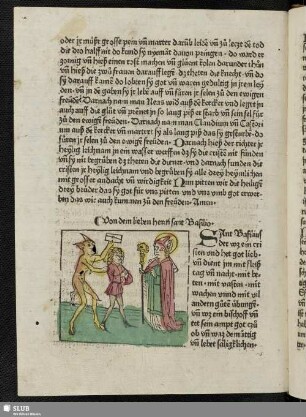 oder je muͤst grosse pein vñ marter darūb leide vñ zů leczt dē tod
die dro half nit do kund sy nyemāt dauon pringen · do ward er
zornig vñ hieß einen rost machen vñ gluͤent kolen darunder thůn
vñ hieß die zwů frawen darauff legē · dz theten die knecht · vñ do
sy darauff kamē do lobten sy got vñ waren gedultig in jrem ley
den · vñ in de gaben sy jr lebē auff vñ fůren jr selen zů den ewigen
freuden · Darnach nam man auß dē kercker vnd legt in
auch auff die glůt vñ prennet jn so lang piß er starb vñ sein sel fůr
zů den ewigē freuden · Darnach nā man Claudium vñ Castori
um auß dē kercker vñ martert sy als lang piß das sy gesturbē · da
fůren jr selen zů den ewigē freuden · Darnach hieß der richter jr
heylig leichnam in ein wasser werffen dz sy die cristē nit funden
vñ sy nit begrůben dz theten die diener · vnd darnach funden die
cristen jr heylig leichnam vnd begrůben sy alle drey heymlichen
mit grosser andacht vñ wirdigkeit · Nun pitten wir die heiligē
drey bruder das sy got fůr vns pitten vnd vns gnad vmb got er
werben das wir auch kummen zů den freuden · Amen ·
Von dem lieben herrn sant Basilio ·
Sant Basilius
der wz ein cristen
vnd het got lieb
vñ dienet jm mit fleiß
tag vñ nacht · mit be
ten · mit vasten · mit
wachen vnnd mit vil
andern gůtē uͤbungē ·
vñ wz ein bischoff vñ
tet sein ampt got czů
lob vñ wz diemuͤtig
vñ lebet seligklichen ·
SLUB
Wir führen Wissen.